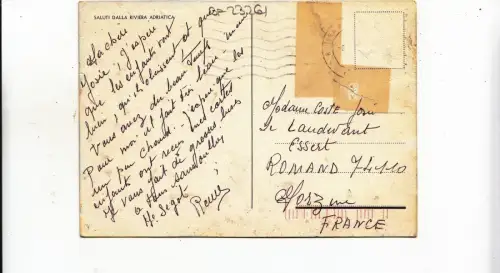 SALUTI DALLA RIVIERA ADRIATICA
BA 23261
Josie, j'espère
que les enfants vont
bien, qu'ils obéissent et que
vous avez du beau temps
Pour moi il fait très beau, même
un peu chaud. j'espère que les
enfants ont reçu mes cartes
Je vous fait de grosses bises
à tous sans oublier
Mr Segot !
Madame COSTE José
Le Laudevant
Essert
ROMAND 74110
Morzine
FRANCE